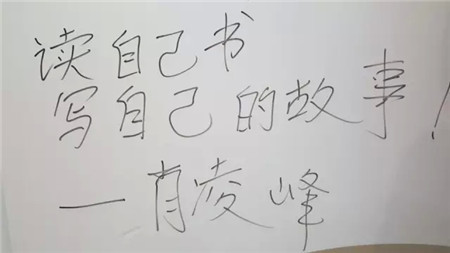 读自己书
写自己的故事！
—肖凌峰